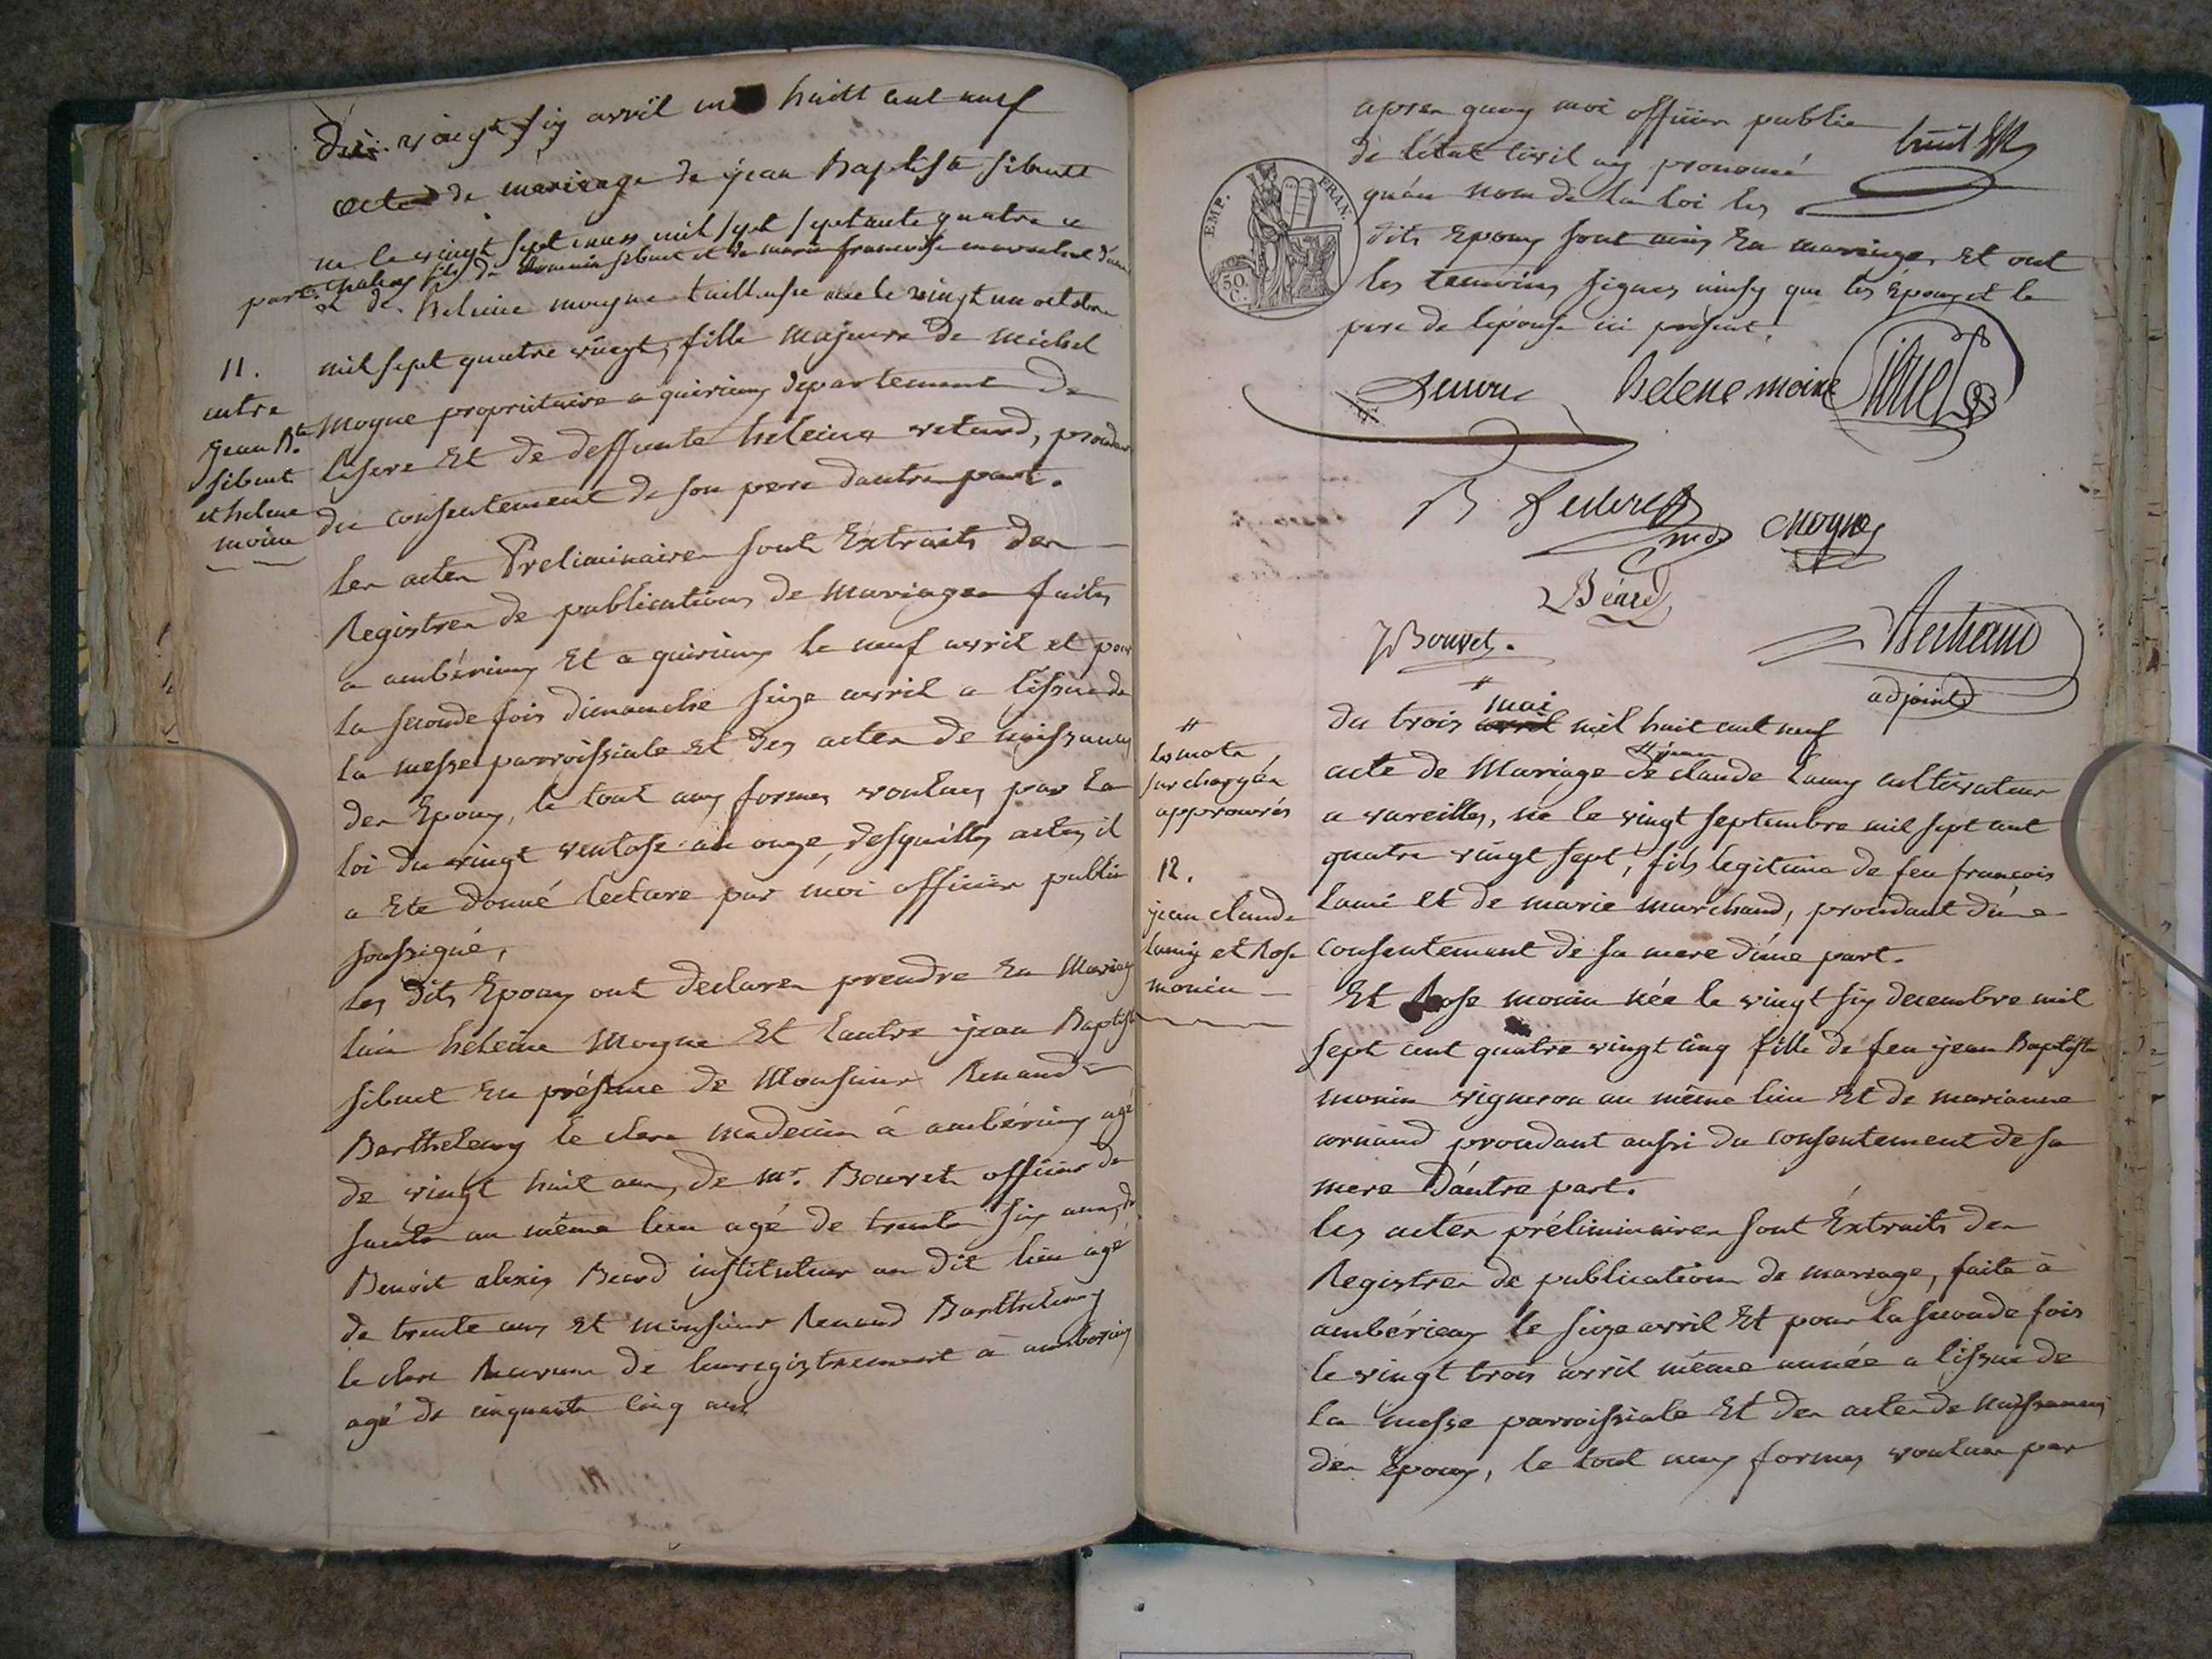 Du vingt six avril mil huitt cent neuf
acte de mariage de jean Baptiste sibuet
né le vingt sept mars mil sept septante quatre a
fils de sibuet et de marie francoise d'une
part.
et de heleine moyne tailleuse née le vingt un octobre
mil sept quatre vingt, fille majeure de michel
11.
entre
jean Bte
sibuet
et helene
moine
moyne propriétaire a quirieux departement de
lisere Et de deffunte heleine, procedant
du consentement de son pere dautre part.
Les actes Preliminaires sont Extraits des
Registres de publications de mariages faites
a ambérieux Et a quirieux le neuf avril et pour
la seconde fois dimanche seize avril a lissue de
la messe parroissiale et des actes de naissances
des Epoux, le tout aux formes voulues par la
loi du vingt ventose an onze, desquelles actes il
a Eté donné lecture par moi officier public
soussigné,
Les dits Epoux ont declarer prendre En Mariage
luin heleine Moyne Et Lautre jean Baptiste
sibuet En présence de Monsieur Renaud
Barthelemy le clerc medecin à ambérieux agé
de vingt huit ans, de mr. Bouvet officier de
santé au même lieu agé de trente six ans, de
Benoit alexis Beard instituteur au dit lieu agé
de trente ans Et monsieur Renaud Barthelemy
le clerc Receveur de lenregistrement à amberieux
agé de cinquante cinq ans
apres quoy moi officier public
de létat Civil ay prononcé
quau nom de la loi les
dits Epoux sont unis En mariage, Et ont
les temoins signes ainsy que les Epoux et le
pere de lepouse ici présent.
EMP. FRAN.
50 C.
helene moine
Sibuet
Leclerc
md
moyne
Béard
JBouvet.
Bertrand
adjoint
# mai
du trois avril mil huit cent neuf
#
Les mots
surchargés
approuvés
# jean
acte de Mariage de claude Lamy cultivateur
a vareilles, né le vingt septembre mil sept cent
quatre vingt sept, fils legitime de feu francois
12.
jean claude
Lamy et Rose
monin
Lami et de marie marchand, procedant du
consentement de sa mere d'une part.
Et Rose monin née le vingt six decembre mil
sept cent quatre vingt cinq fille de feu jean Baptiste
monin vigneron au même lieu Et de marianne
procedant aussi du consentement de sa
mere D'autre part.
les actes préliminaires sont Extraits des
Registres de publications de mariage, faite à
ambérieux le seize avril Et pour la seconde fois
le vingt trois avril même année a lissue de
la messe parroissiale Et des actes de naissances
des Epoux, le tout aux formes voulues par